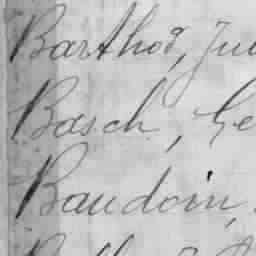 Barthod, Ju
Basch, Ge
Baudoin,